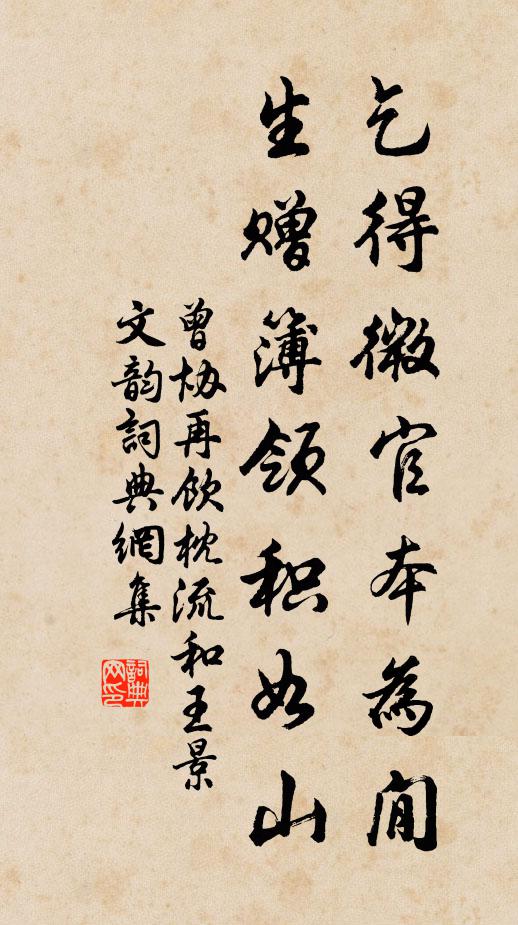 乞得微官本為閒
生赠簿领积如山
曾协再飲枕流和王景
文韵詞典網集
詞典网印